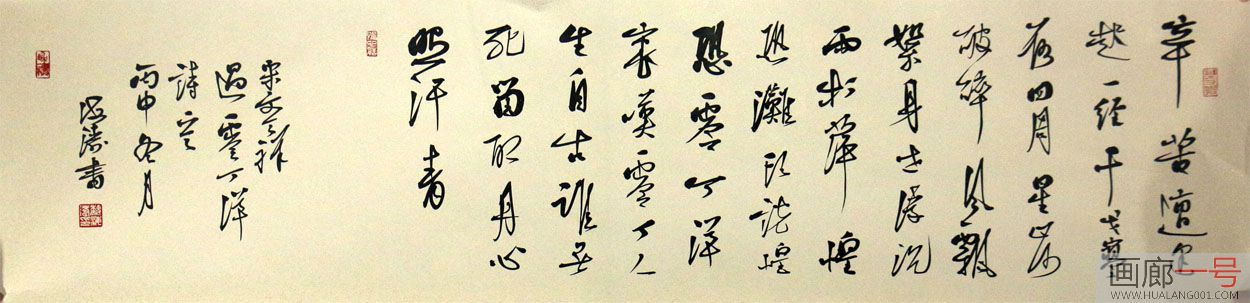 辛苦遭逢
起一经干戈寥
落四周星山河
破碎风飄
絮身世浮沉
雨打萍惶
恐灘头说惶
恐零丁洋
裏嘆零丁人
生自古谁无
死留取丹心
照汗青
宋文天祥
過零丁洋
詩
丙申冬月
書
画廊一号
WWW.HUALANG001.COM